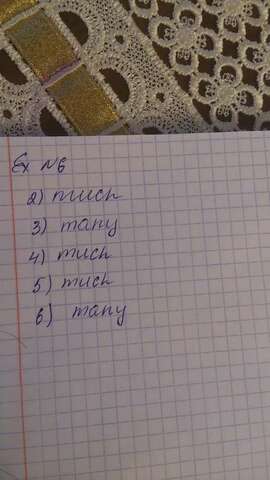 Ex N6
2) much
3) many
4) much
5) much
6) many